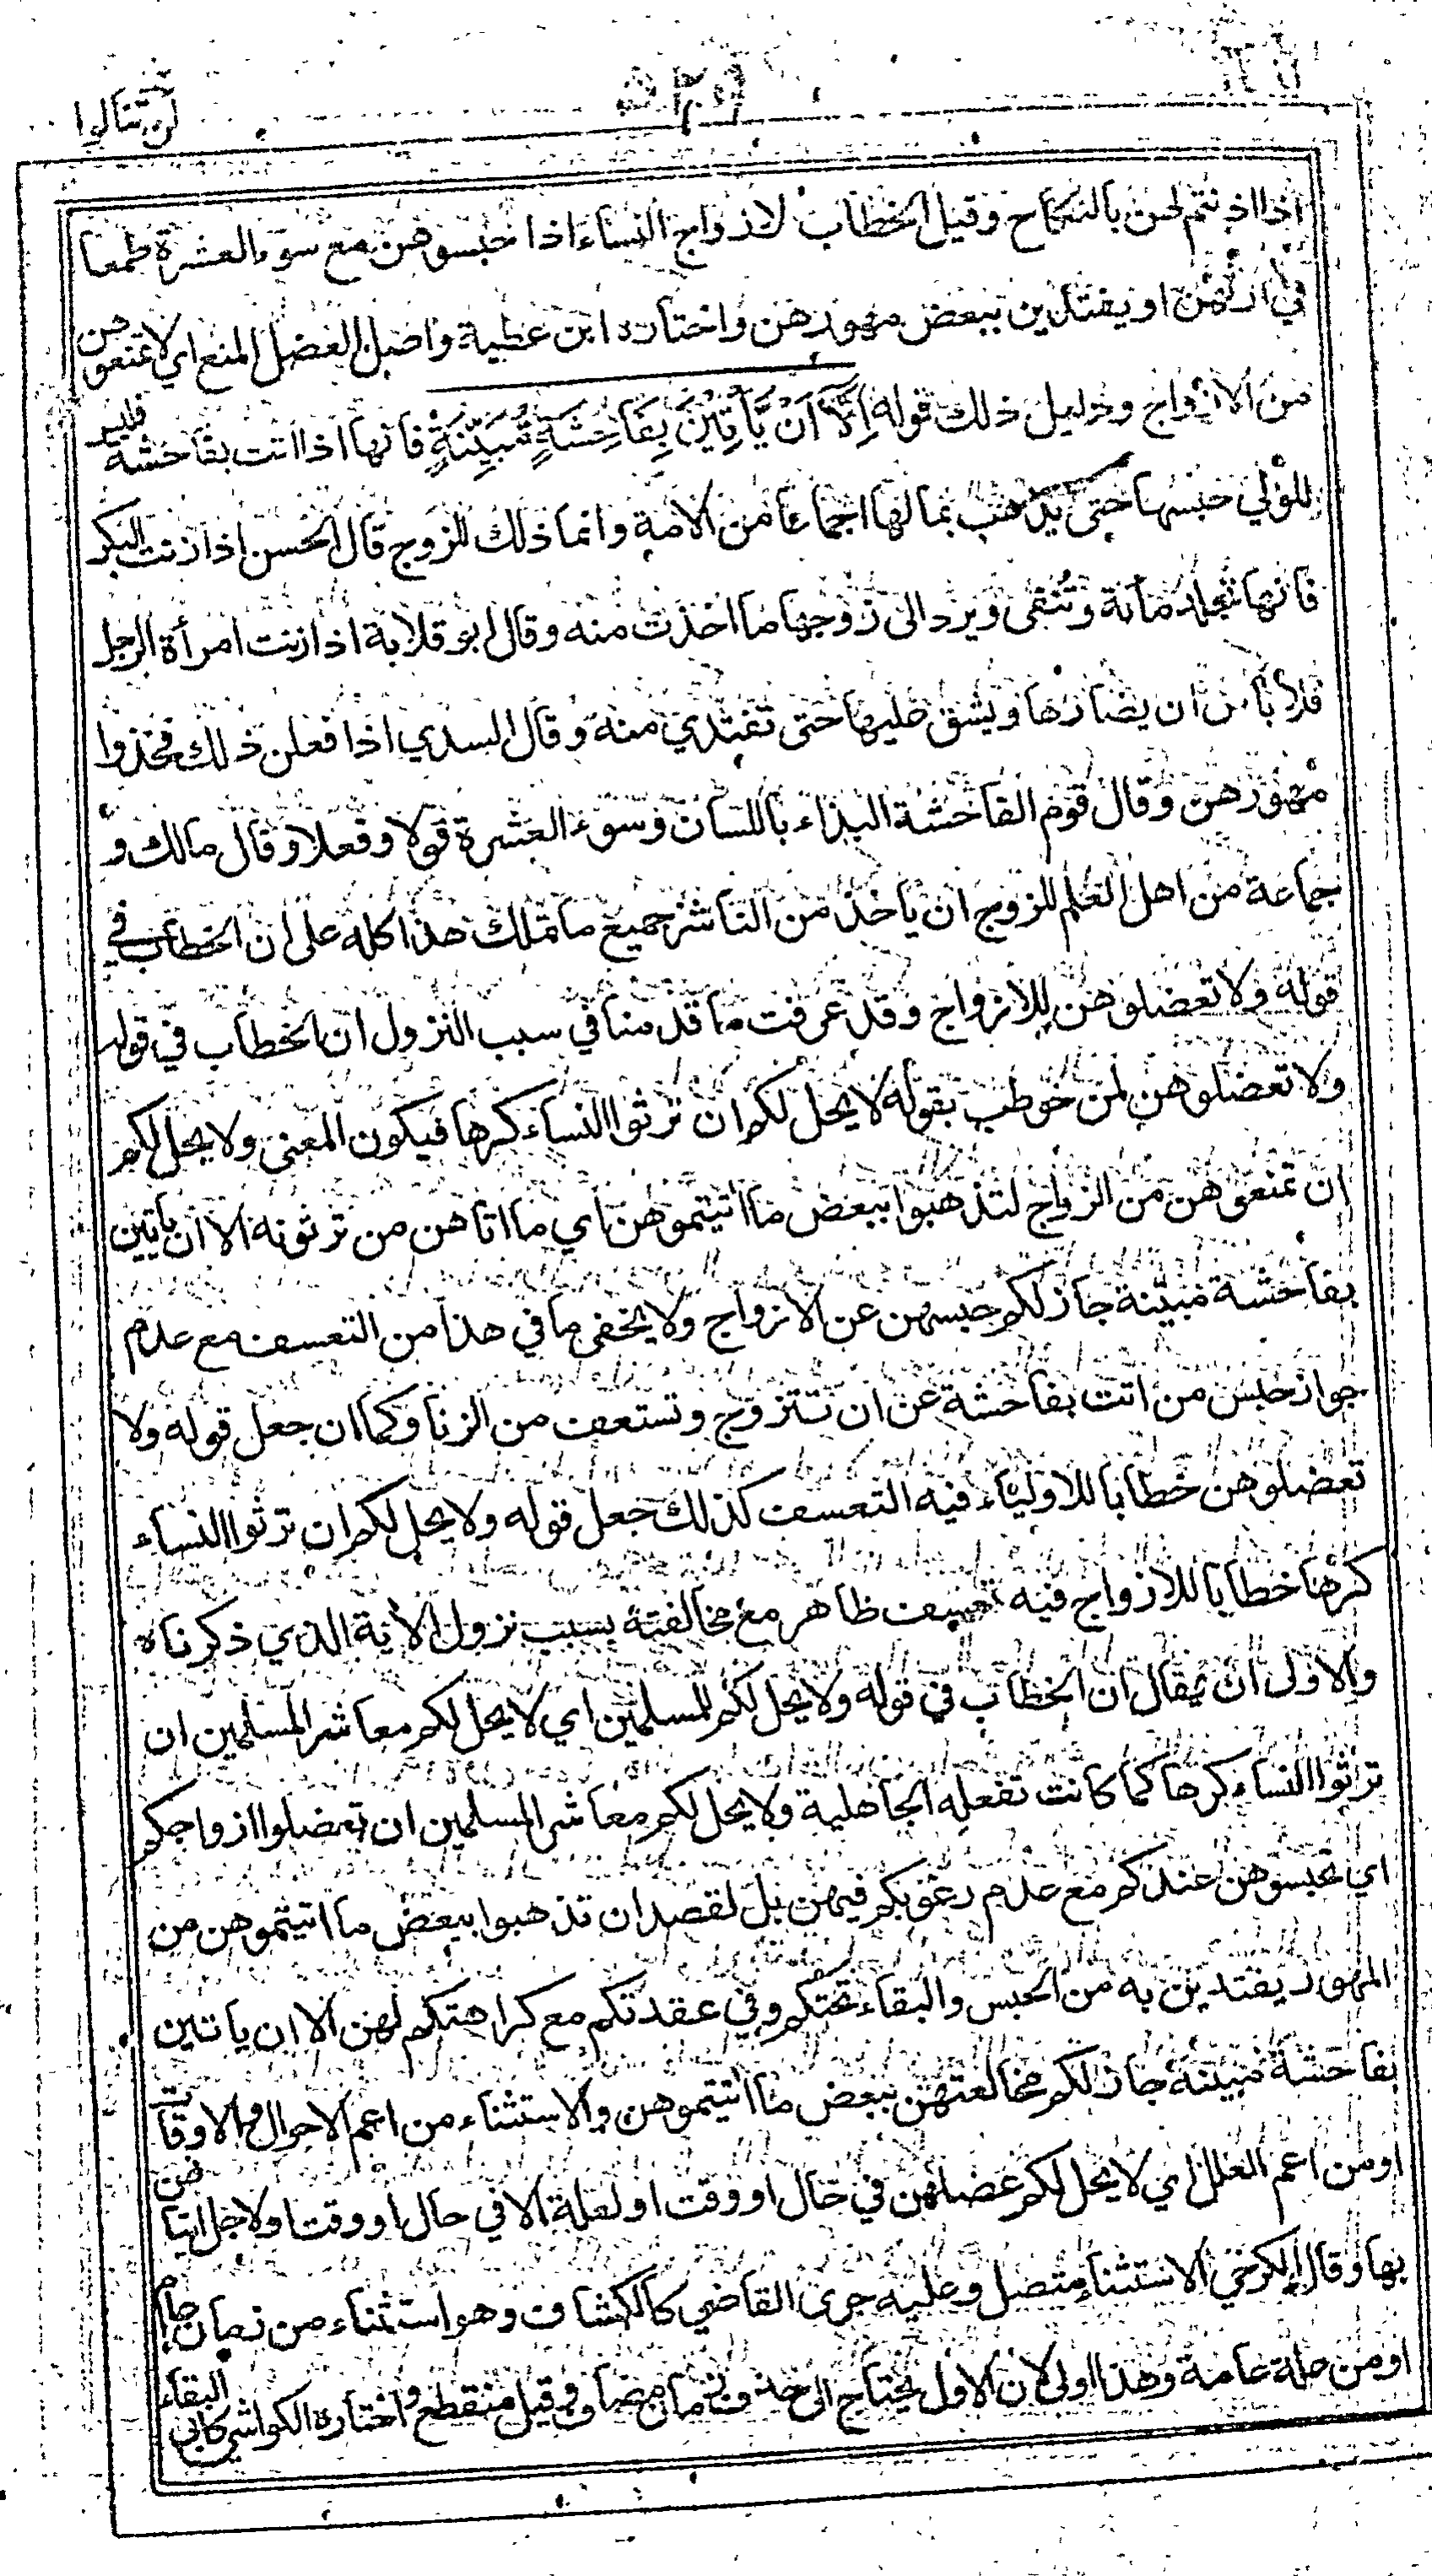 لن تنالوا
اذا اذنتم لهن بالنكاح وقيل الخطاب لازواج النساء اذا حبسوهن مع سوء العشرة طمعا
في ارثهن او يفتدين ببعض مهورهن واختاره ابن عطية واصل العضل المنع اي لا تمنعوهن
من الازواج ودليل ذلك قوله اِلَّآ اَنْ يَّأْتِيْنَ بِفَاحِشَةٍ مُّبَيِّنَةٍ فانها اذا اتت بفاحشة فليس
للولي حبسها حتى يذهب بمالها اجماعا من الامة وانما ذلك للزوج قال الحسن اذا زنت البكر
فانها تجلد مائة وتنفى ويرد الى زوجها ما اخذت منه وقال ابو قلابة اذا زنت امرأة الرجل
فلا بأس ان يضارها ويشق عليها حتى تفتدي منه وقال السدي اذا فعلن ذلك فخذوا
مهورهن وقال قوم الفاحشة البذاء باللسان وسوء العشرة قولا وفعلا وقال مالك و
جماعة من اهل العلم للزوج ان ياخذ من الناشز جميع ما تملك هذا كله على ان الخطاب في
قوله ولا تعضلوهن للازواج وقد عرفت ما قدمنا في سبب النزول ان الخطاب في قوله
ولا تعضلوهن لمن خوطب بقوله لا يحل لكم ان ترثوا النساء كرها فيكون المعنى ولا يحل لكم
ان تمنعوهن من الزواج لتذهبوا ببعض ما اتيتموهن اي ما اتاهن من ترثونه الا ان ياتين
بفاحشة مبينة جاز لكم حبسهن عن الازواج ولا يخفى ما في هذا من التعسف مع عدم
جواز حبس من اتت بفاحشة عن ان تتزوج وتستعف من الزنا وكما ان جعل قوله ولا
تعضلوهن خطابا للاولياء فيه التعسف كذلك جعل قوله ولا يحل لكم ان ترثوا النساء
كرها خطابا للازواج فيه تعسف ظاهر مع مخالفته بسبب نزول الاية الذي ذكرناه
والاولى ان يقال ان الخطاب في قوله ولا يحل لكم للمسلمين اي لا يحل لكم معاشر المسلمين ان
ترثوا النساء كرها كما كانت تفعله الجاهلية ولا يحل لكم معاشر المسلمين ان تعضلوا ازواجكم
اي تحبسوهن عندكم مع عدم رغوبكم فيهن بل لقصد ان تذهبوا ببعض ما اتيتموهن من
المهور يفتدين به من الحبس والبقاء تحتكم وفي عقدتكم مع كراهتكم لهن الا ان ياتين
بفاحشة مبينة جاز لكم مخالعتهن ببعض ما اتيتموهن والاستثناء من اعم الاحوال والاوقات
او من اعم العلل اي لا يحل لكم عضلهن في حال او وقت او لعلة الا في حال او وقت او لاجل اتيانهن
بها وقال الكرخي الاستثناء متصل وعليه جرى القاضي كالكشاف وهو استثناء من زمان عام
او من علة عامة وهذا اولى لان الاول يحتاج الى حذف زمان مضاف وقيل منقطع واختاره الكواشي كابي البقاء